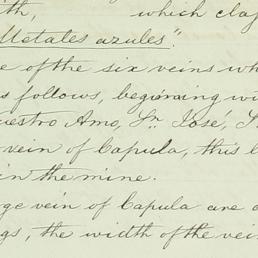 th, which clas
Metales azules".
e of the six veins wh
s follows, beginning wi
uestro Amo, Sn José, S
vein of Capula, this l
in the mine.
ge vein of Capula are o
gs, the width of the vei